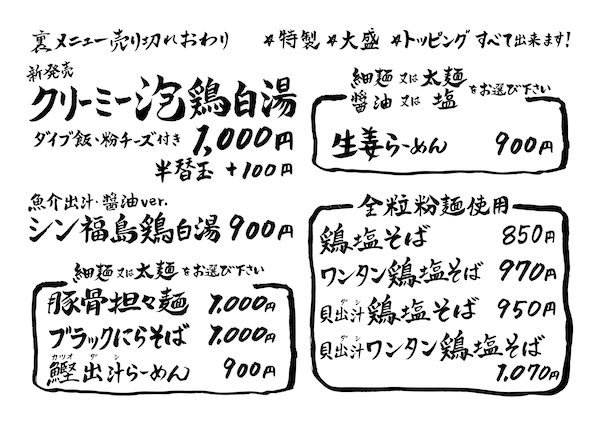 裏メニュー売り切れおわり ☆特製 ☆大盛 ☆トッピング すべて出来ます!
新発売
クリーミー泡鶏白湯
ダイブ飯、粉チーズ付き 1,000円
半替玉 +100円
魚介出汁・醬油ver.
シン福島鶏白湯 900円
細麺又は太麺をお選び下さい
豚骨担々麺 1,000円
ブラックにらそば 1,000円
鰹出汁らーめん 900円
カツオ ダシ
細麺又は太麺
醬油又は塩 をお選び下さい
生姜らーめん 900円
全粒粉麺使用
鶏塩そば 850円
ワンタン鶏塩そば 970円
貝出汁鶏塩そば 950円
ダシ
貝出汁ワンタン鶏塩そば
ダシ
1,070円